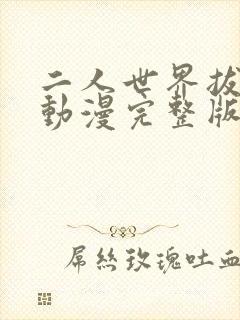 二人世界拔
動漫完整版
屌絲玫瑰吐血